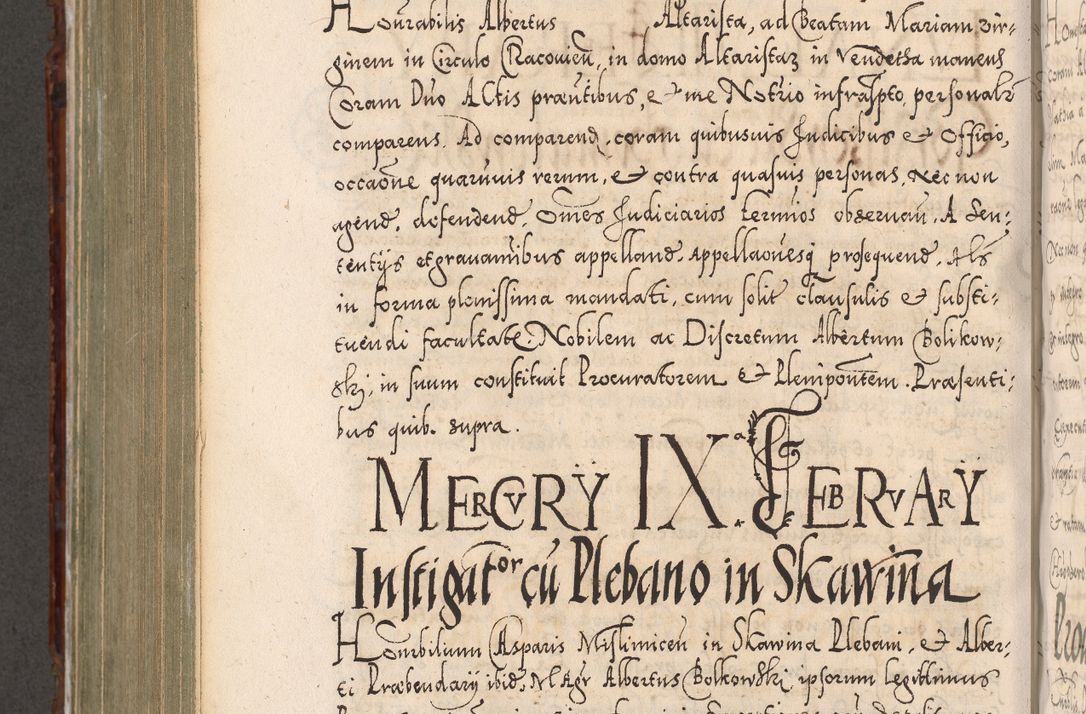 Hourabilis Albertus Altarista, ad Beatam Mariam Vir-
ginem in Circulo Cracouien, in domo Altaristar in Vendetha manens
Coram Dno Actis prantibus, & me Notrio infraspto, personalr
comparens. Ad comparend, coram quibusuis Judicibus & Officio,
occaone quaruuis rerum, & contra quasuis personas, Nec non
agend, defendend, omes Judiciarios termios obseruan, A Sen-
tentijs et grauamibus appelland, appellaonesq prosequend, Als
in forma plenissima mandati, cum solit clausulis & substi-
tuendi facultate. Nobilem ac Discretum Albertum Bolikow-
ski, in suum constituit Procuratorem & Plenipontem. Præsenti-
bus quib. supra.
MERCVRŸ IX.ª FEBRVARŸ
Instigator cū Plebano in Skawina
Hourbilium Casparis Mislimicen in Skawina Plebani, & Alber-
ti Præbendarij ibid, N Agr Albertus Bolkowski ipsorum legittimus